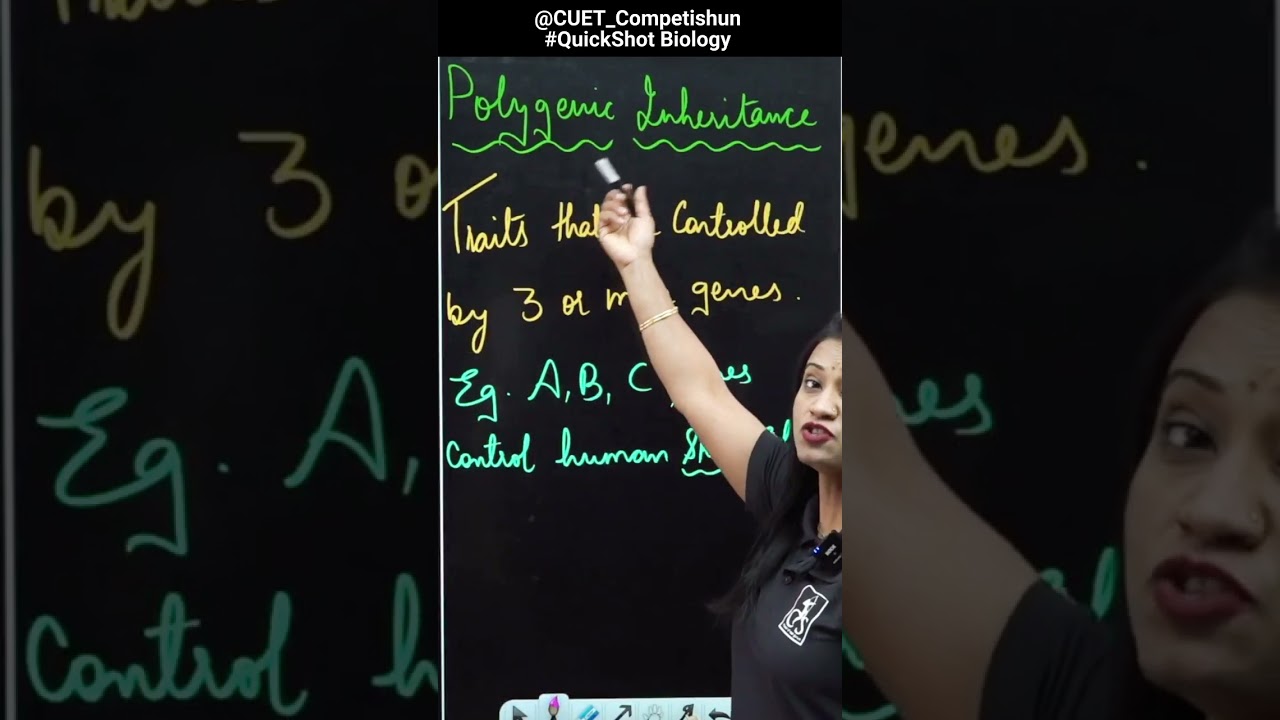 @CUET_Competishun
#QuickShot Biology
Polygenic Inheritance
Traits that controlled
by 3 or genes.
Eg. A, B, C
Control human